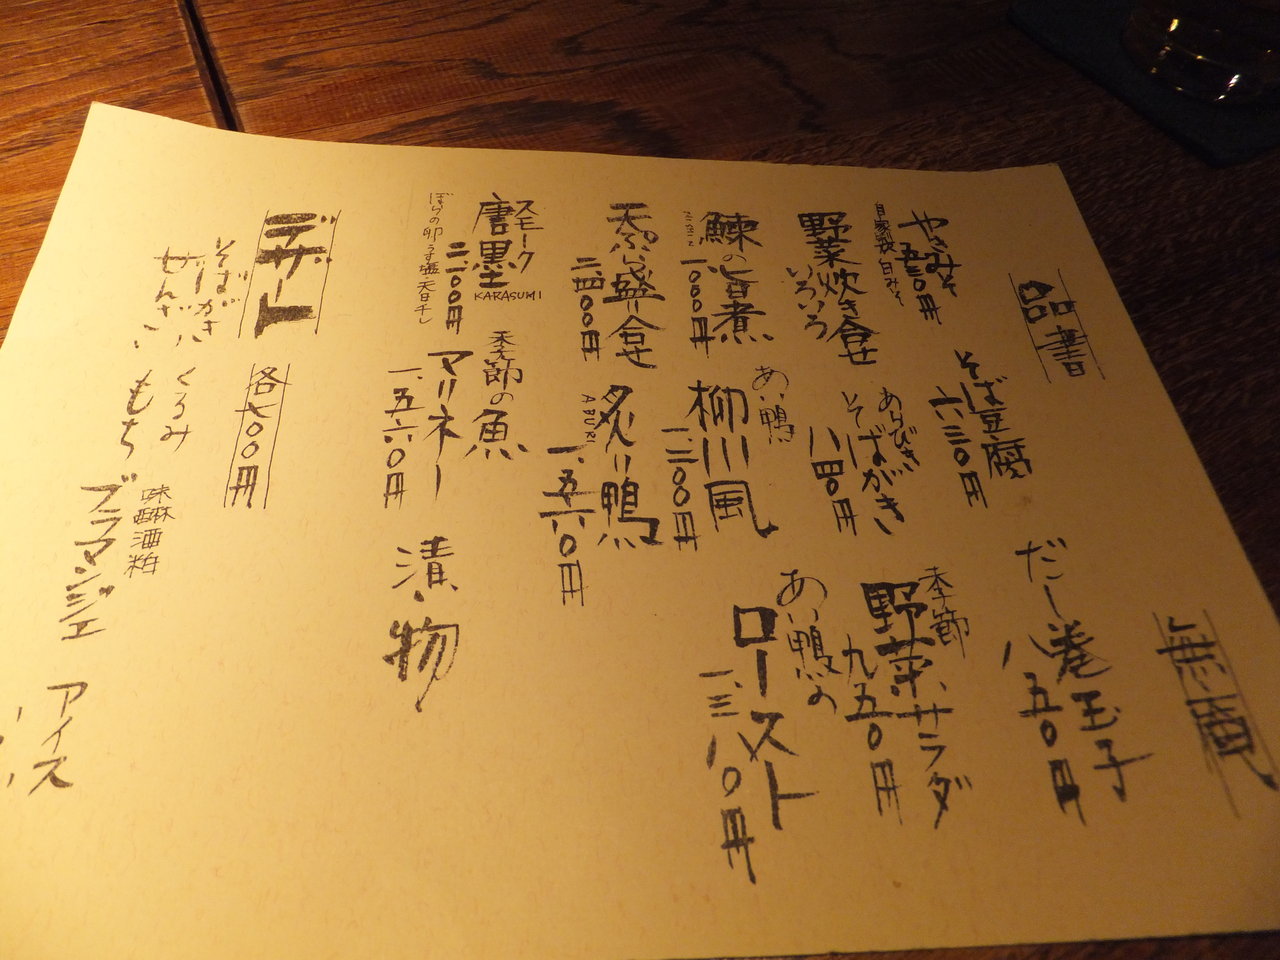 品書
無庵
やきみそ
自家製 白みそ
五三〇円
そば豆腐
六三〇円
だし巻玉子
八五〇円
野菜炊き合せ
いろいろ
あらびき
そばがき
八四〇円
季節
野菜サラダ
九五〇円
鰊の旨煮
一、〇〇〇円
あい鴨
柳川風
一、二〇〇円
あい鴨の
ロースト
一、三八〇円
天ぷら盛合せ
二、四〇〇円
炙り鴨
ABURI
一、五六〇円
スモーク
唐墨
KARASUMI
二、一〇〇円
ぼらの卵うす塩・天日干し
季節の魚
マリネー
一、五六〇円
漬物
デザート
各七〇〇円
そばがき
ぜんざい
くるみ
もち
味醂酒粕
ブラマンジェ
アイス